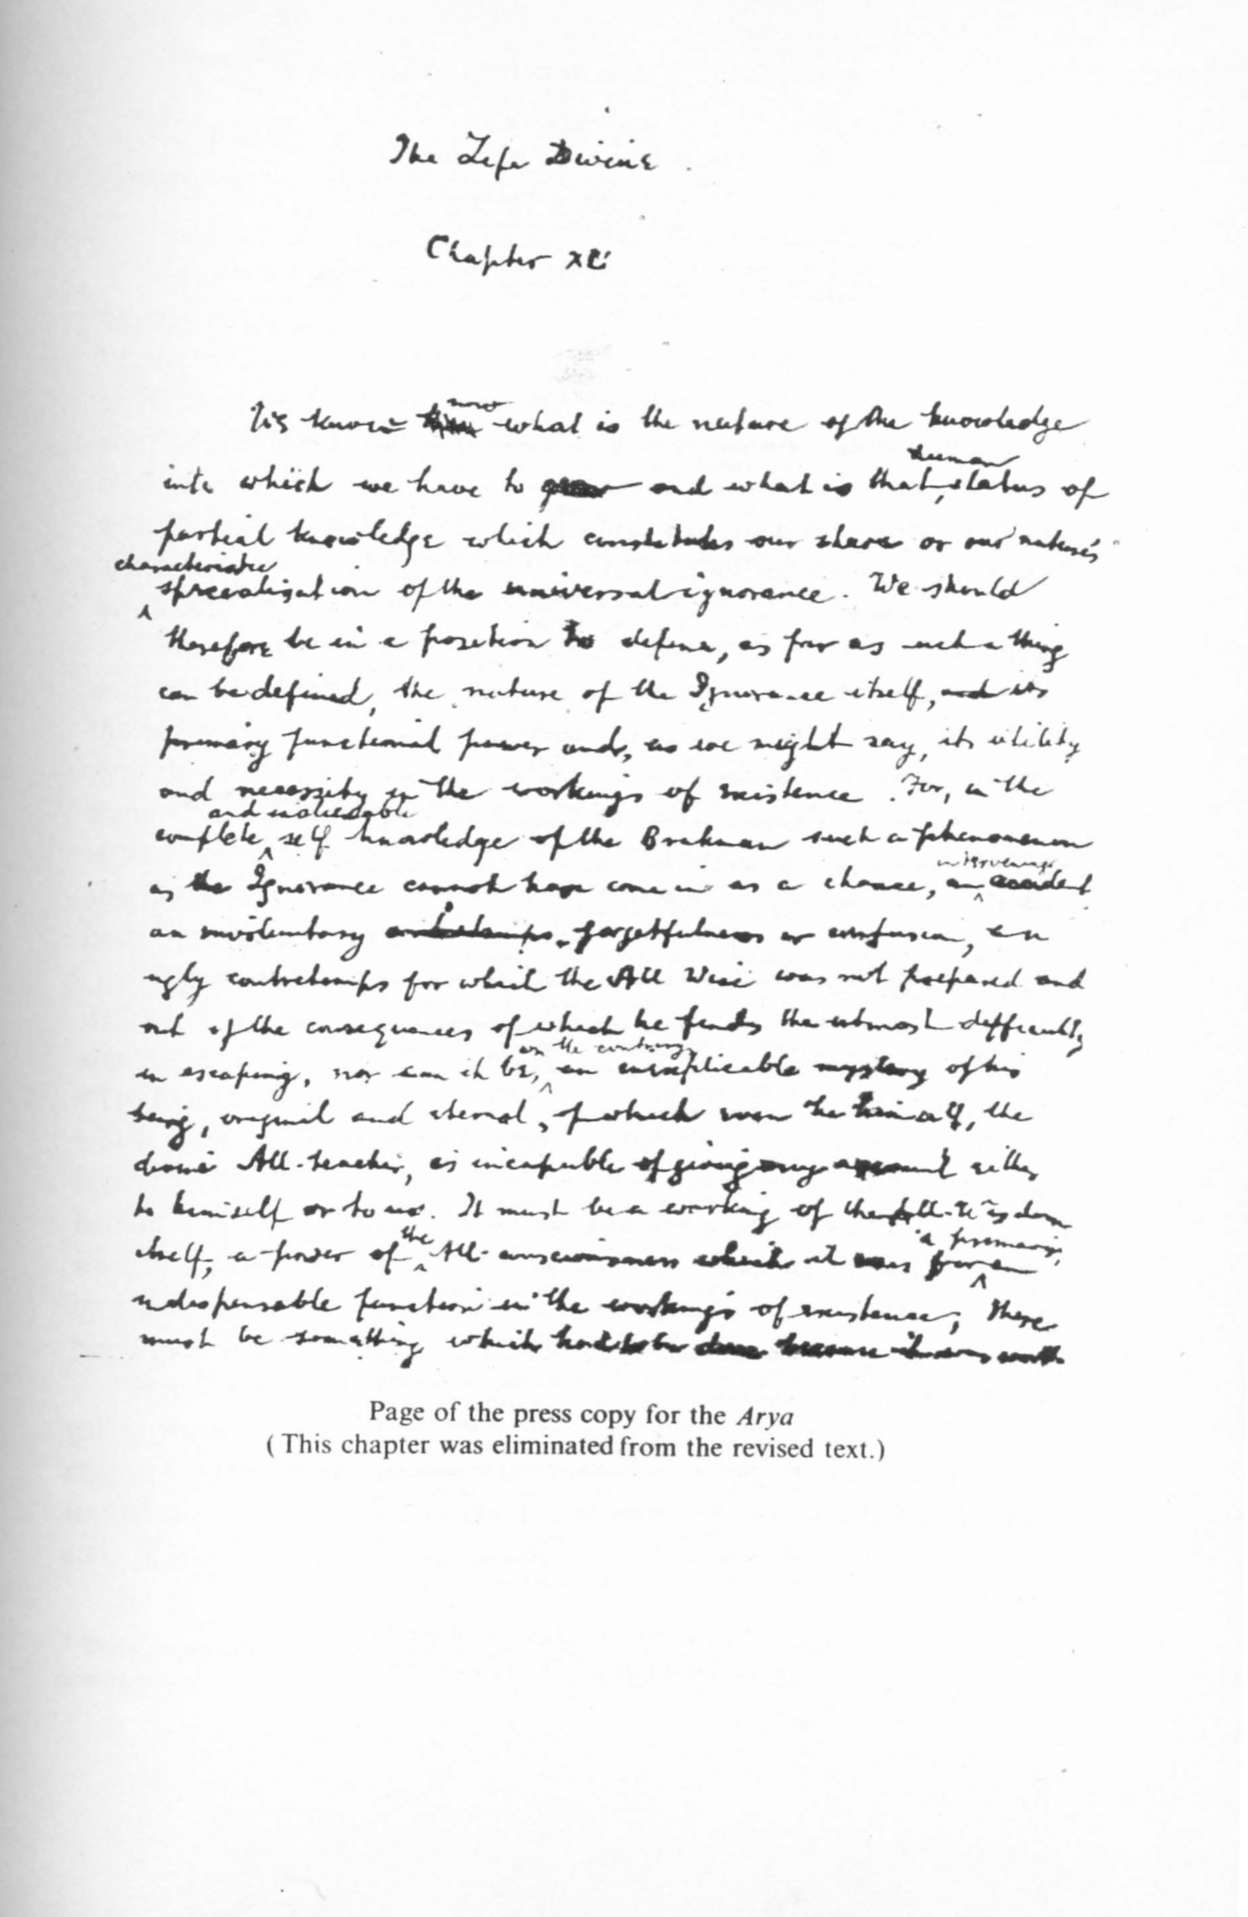 The Life Divine
Chapter XLI
We know now what is the nature of the knowledge
human
into which we have to grow and what is that status of
partial knowledge which constitutes our share or our nature's
characteristic
specialisation of the universal ignorance. We should
therefore be in a position to define, as far as such a thing
can be defined, the nature of the Ignorance itself, and its
primary functional power and, as we might say, its utility
and necessity in the workings of existence. For, in the
and inalienable
complete self knowledge of the Brahman such a phenomenon
intervening
as the Ignorance cannot have come in as a chance, an accident
an involuntary forgetfulness or confusion, an
ugly contretemps for which the All Wise was not prepared and
out of the consequences of which he finds the utmost difficulty
on the contrary,
in escaping, nor can it be, an inexplicable mystery of his
being, original and eternal, of which even he himself, the
divine All-teacher, is incapable of giving any account either
to himself or to us. It must be a working of the All-Wisdom
the a primary,
itself, a power of All-consciousness which it uses for an
indispensable function in the workings of existence; there
must be something which had to be done because it was worth
Page of the press copy for the Arya
(This chapter was eliminated from the revised text.)